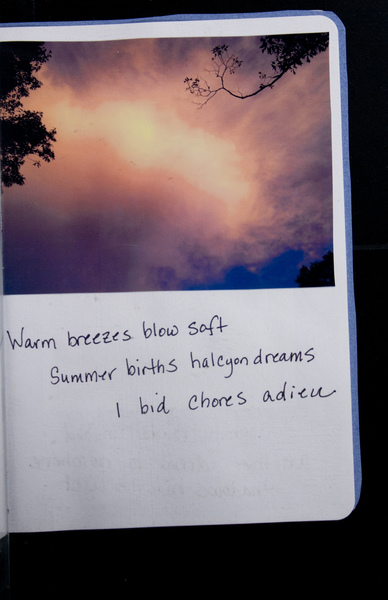 Warm breezes blow soft
Summer births halcyon dreams
I bid chores adieu.